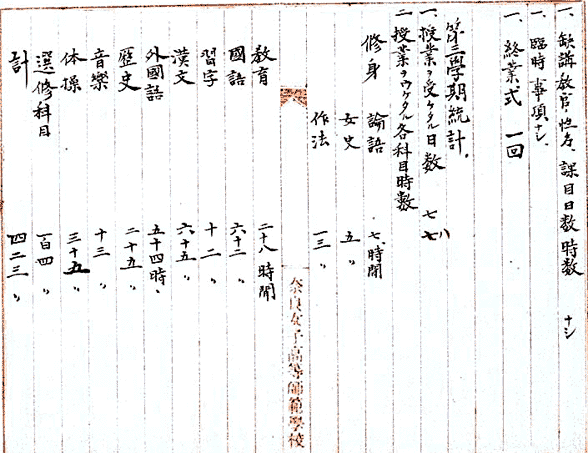 一、缺講教官ノ性名、課目日数時数　ナシ
一、臨時事項ナシ、
一、終業式　一回
第三學期統計、
一、授業ヲ受ケタル日数　七八
二授業ヲウケタル各科目時数
修身　論語　七、時間
女史　五〃
作法　一三〃
奈良女子高等師範學校
教育　二十八時間
國語　六十二〃
習字　十二〃
漢文　六十五〃
外國語　五十四時、
歴史　二十五〃
音樂　十三〃
体操　三十五〃
選修科目　一百四〃
計　四二三〃